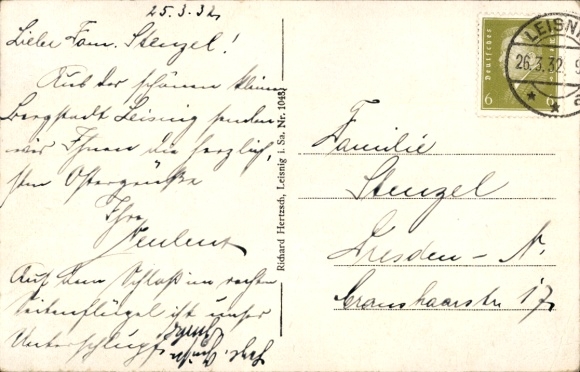 25.3.32.
Liebe Fam. Stenzel!
Aus der schönen kleinen
Bergstadt Leisnig senden
wir Ihnen die herzlich-
sten Ostergrüße
Ihre
Auf dem Schloß im rechten
Seitenflügel ist unser
Unterschlupf.
Richard Hertzsch, Leisnig i. Sa. Nr. 1048.
Deutsches
6 6
LEISNI
26.3.32. 9
Familie
Stenzel
Dresden - N.
Cranchaarstr 17